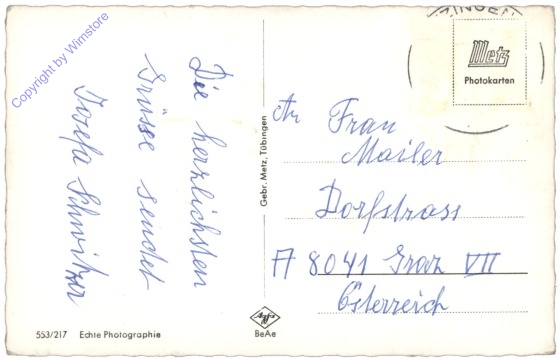 Copyright by Wimstore
Die herzlichsten
Grüsse sendet
Josefa Schwitzer
Gebr. Metz, Tübingen
ZINGEN
Metz
Photokarten
An Frau
Mailer
Dorfstrass
A 8041 Graz VII
Österreich
553/217 Echte Photographie
Agfa
BeAe